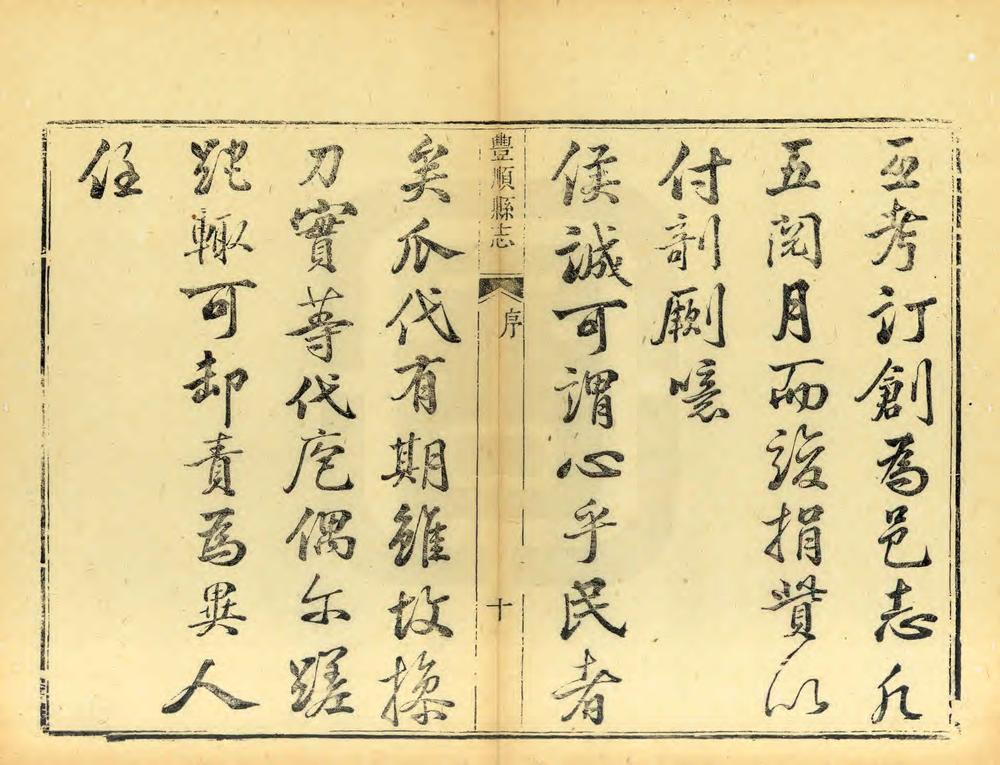 互考訂創為邑志凡
五閱月而竣捐貲以
付剞劂噫
侯誠可謂心乎民者
豐順縣志
序
十
矣瓜代有期雖故操
刀實等代庖偶尔蹉
跎輒可卸責為異人
任